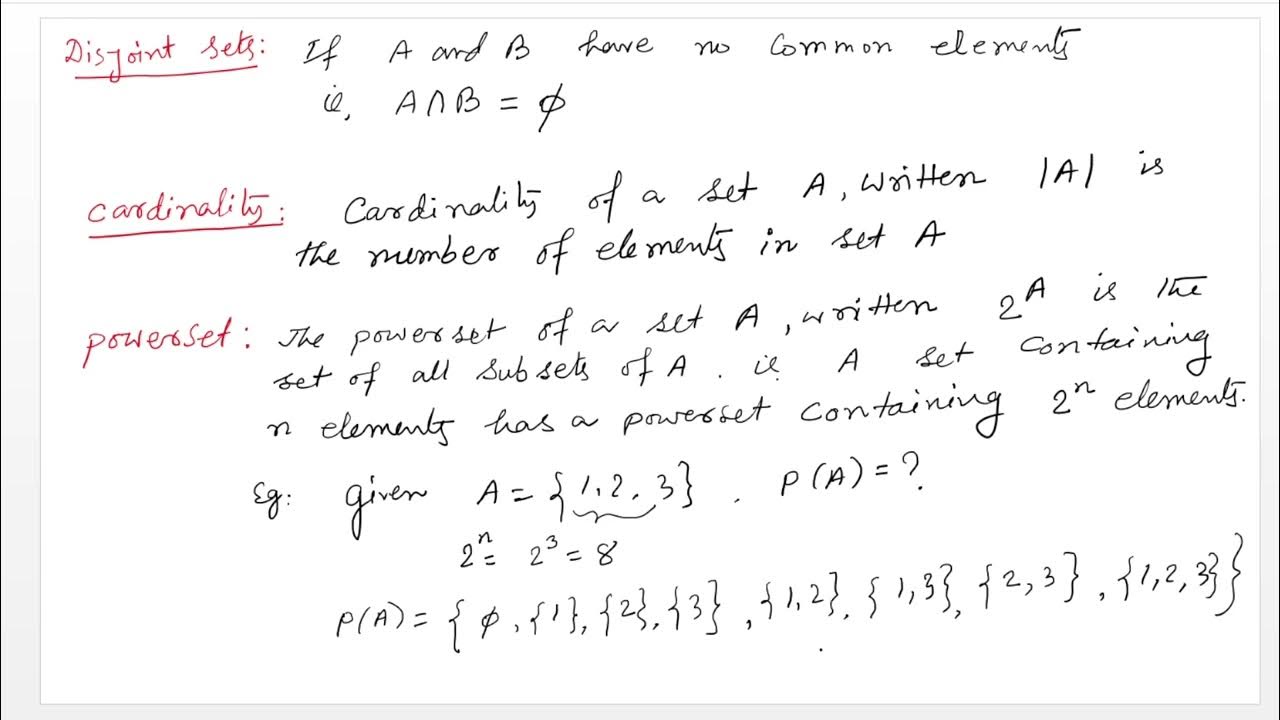 Disjoint sets: If A and B have no common elements
ie, A∩B = ϕ
Cardinality: Cardinality of a set A, written |A| is
the number of elements in set A
Powerset: The powerset of a set A, written 2^A is the
set of all subsets of A. ie A set containing
n elements has a powerset containing 2^n elements.
Eg: Given A = {1, 2, 3}. P(A) = ?
2^n = 2^3 = 8
P(A) = { ϕ, {1}, {2}, {3}, {1, 2}, {1, 3}, {2, 3}, {1, 2, 3}}